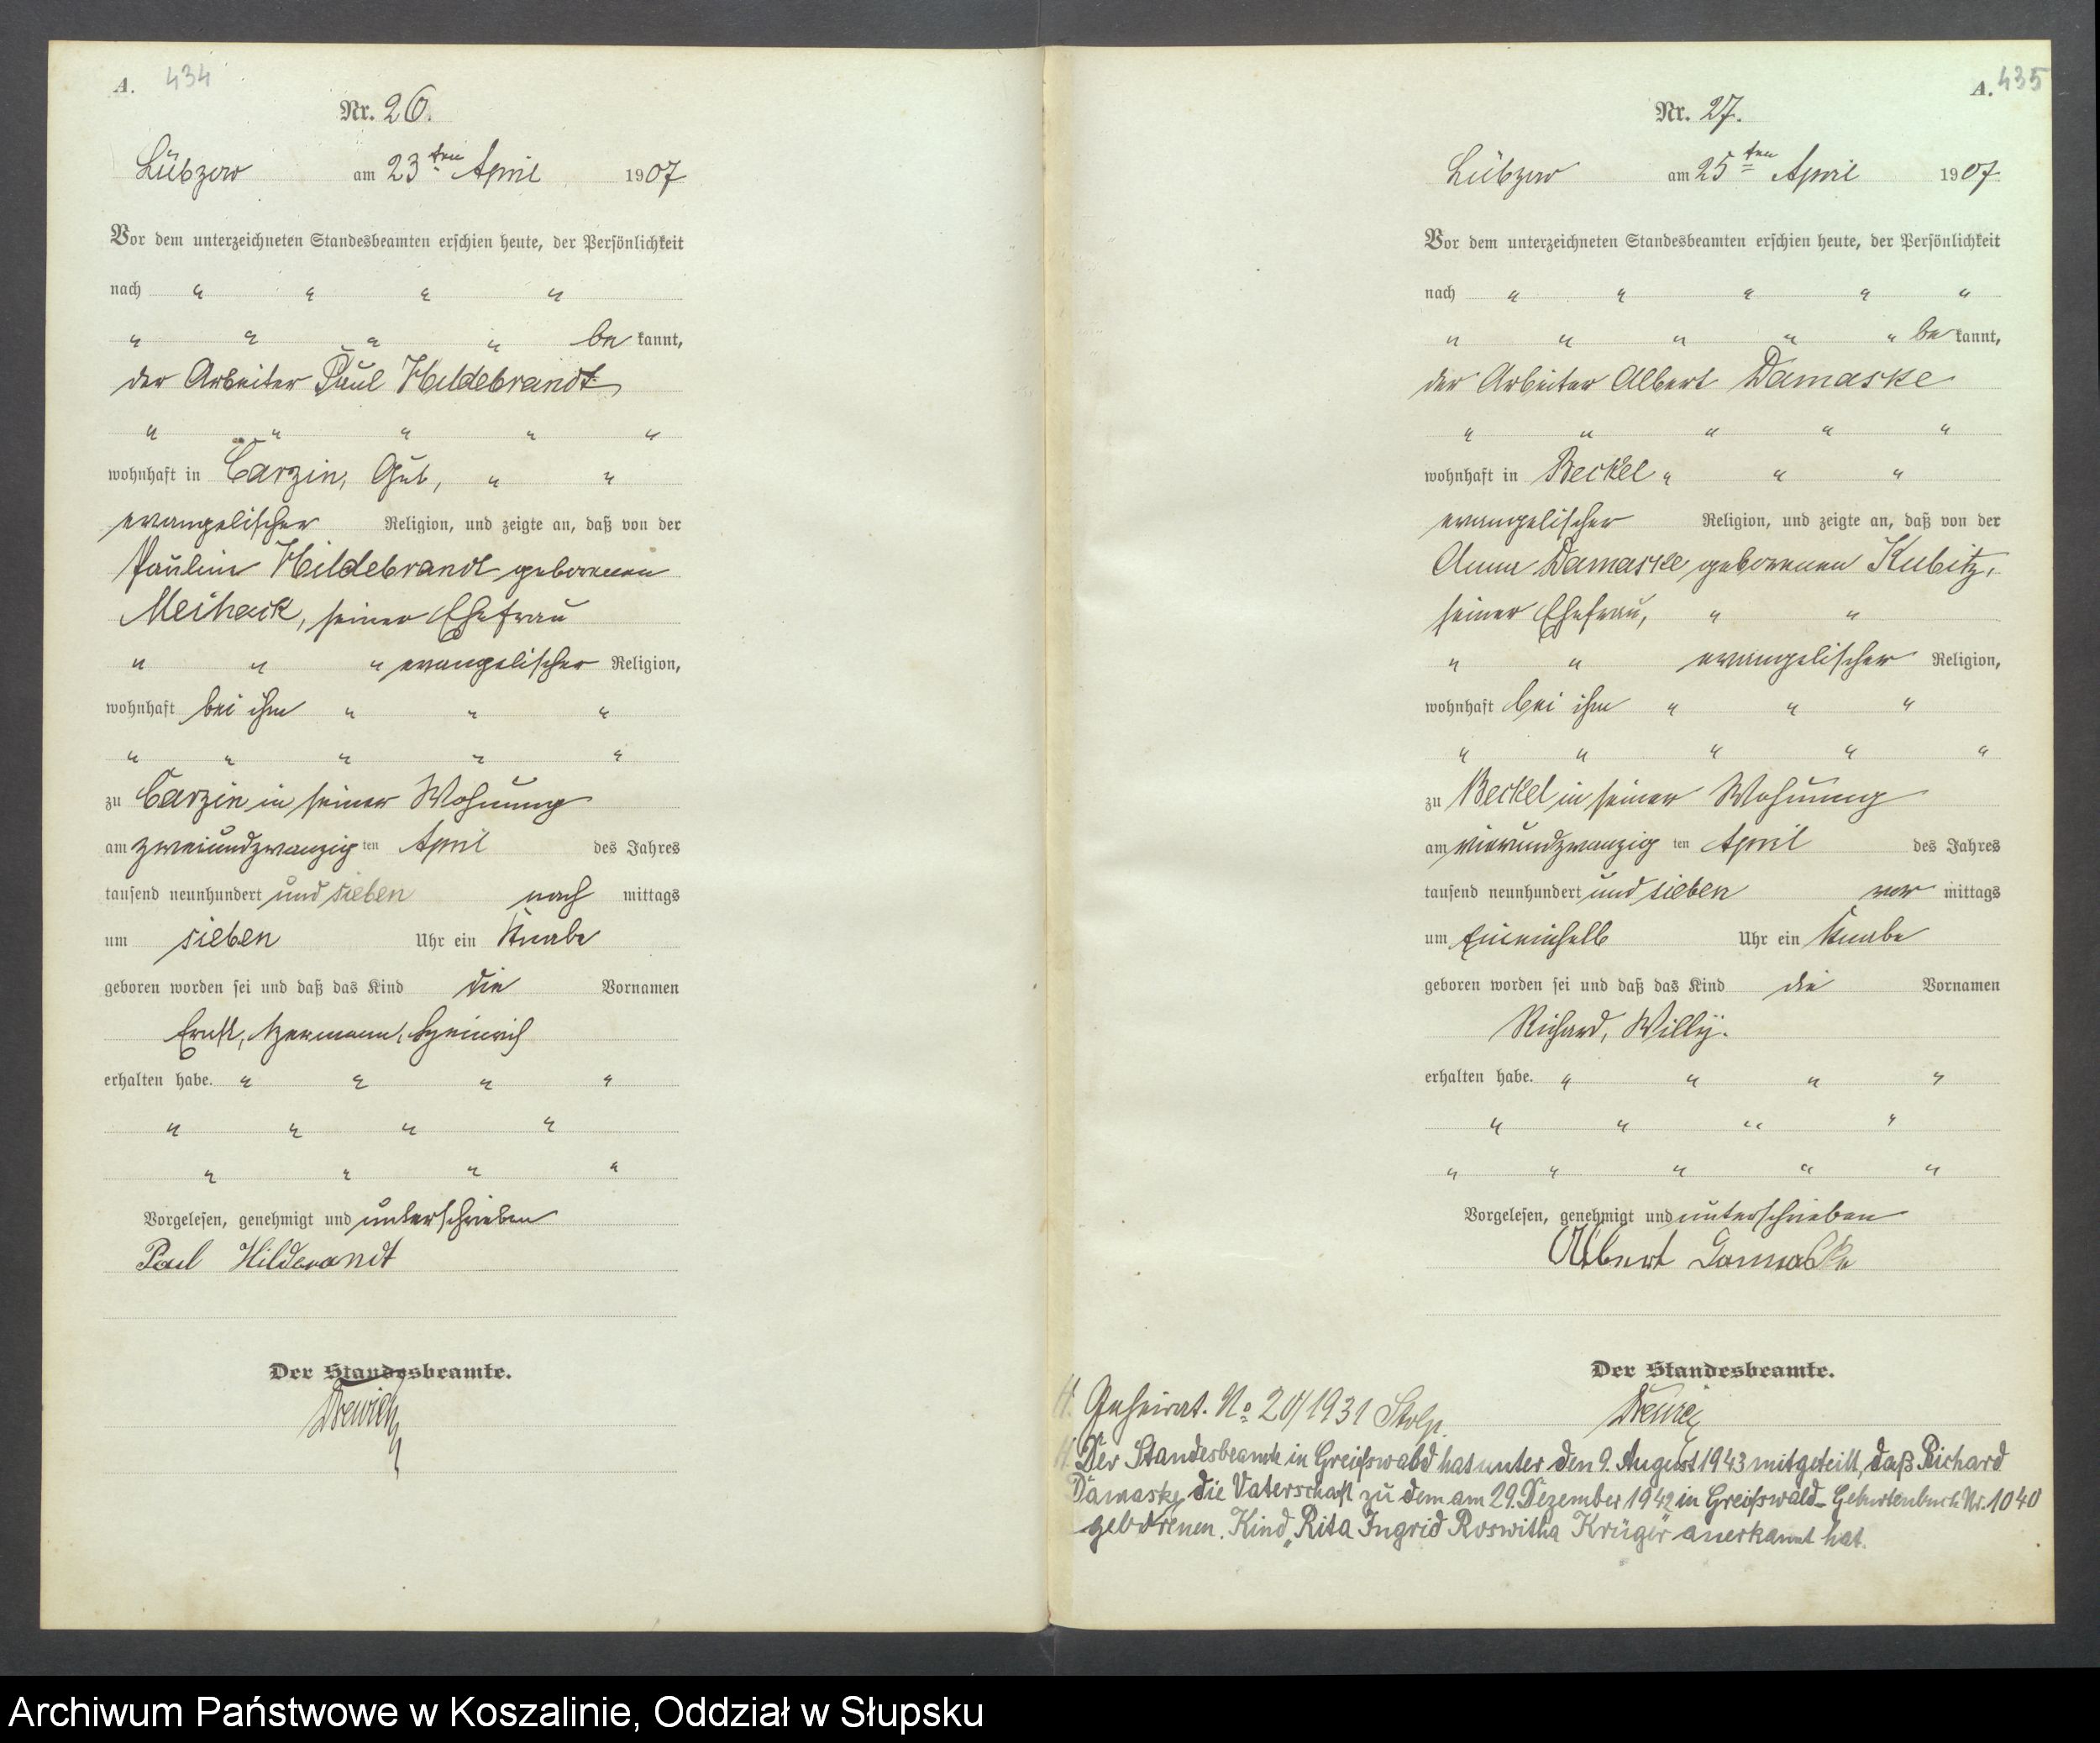 A. 434
Nr. 26.
Lübzow am 23ten April 1907
Vor dem unterzeichneten Standesbeamten erschien heute, der Persönlichkeit
nach " " " "
" " " " be kannt,
der Arbeiter Paul Hildebrandt,
" " " " "
wohnhaft in Carzin, Gut, " "
evangelischer Religion, und zeigte an, daß von der
Pauline Hildebrandt geborenen
Meihack, seiner Ehefrau
" " " evangelischer Religion,
wohnhaft bei ihm " " "
" " " " "
zu Carzin in seiner Wohnung
am zweiundzwanzig ten April des Jahres
tausend neunhundert und sieben nach mittags
um sieben Uhr ein Knabe
geboren worden sei und daß das Kind die Vornamen
Ernst, Hermann, Heinrich
erhalten habe. " " " "
" " " "
" " " "
Vorgelesen, genehmigt und unterschrieben
Paul Hildebrandt
Der Standesbeamte.
A. 435
Nr. 27.
Lübzow am 25ten April 1907.
Vor dem unterzeichneten Standesbeamten erschien heute, der Persönlichkeit
nach " " " " "
" " " " " be kannt,
der Arbeiter Albert Damaske
" " " " "
wohnhaft in Beckel " " "
evangelischer Religion, und zeigte an, daß von der
Anna Damaske geborenen Kubitz,
seiner Ehefrau, " "
" " evangelischer Religion,
wohnhaft bei ihm " " "
" " " " "
zu Beckel in seiner Wohnung
am vierundzwanzig ten April des Jahres
tausend neunhundert und sieben vor mittags
um Eineinhalb Uhr ein Knabe
geboren worden sei und daß das Kind die Vornamen
Richard, Willÿ.
erhalten habe. " " " "
" " " "
" " " " "
Vorgelesen, genehmigt und unterschrieben
Albert Damaske
Der Standesbeamte.
H. Geheirat. No 20/1931 Stolp.
H. Der Standesbeamte in Greifswald hat unter den 9. August 1943 mitgeteilt, daß Richard
Damaske die Vaterschaft zu dem am 29. Dezember 1942 in Greifswald - Geburtenbuch Nr. 1040
geborenen Kind "Rita Ingrid Roswitha Krüger" anerkannt hat.
Archiwum Państwowe w Koszalinie, Oddział w Słupsku